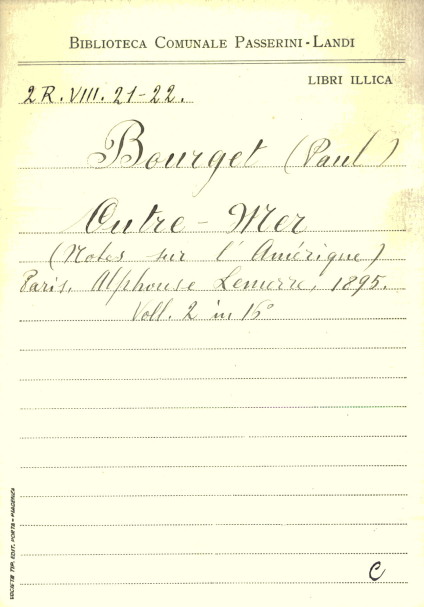 BIBLIOTECA COMUNALE PASSERINI-LANDI
LIBRI ILLICA
2R. VIII. 21-22.
Bourget (Paul)
Outre-Mer
(Notes sur l'Amérique)
Paris, Alphonse Lemerre, 1895.
Voll. 2 in 16°
C
SOCIETÀ TIP. EDIT. PORTA - PIACENZA